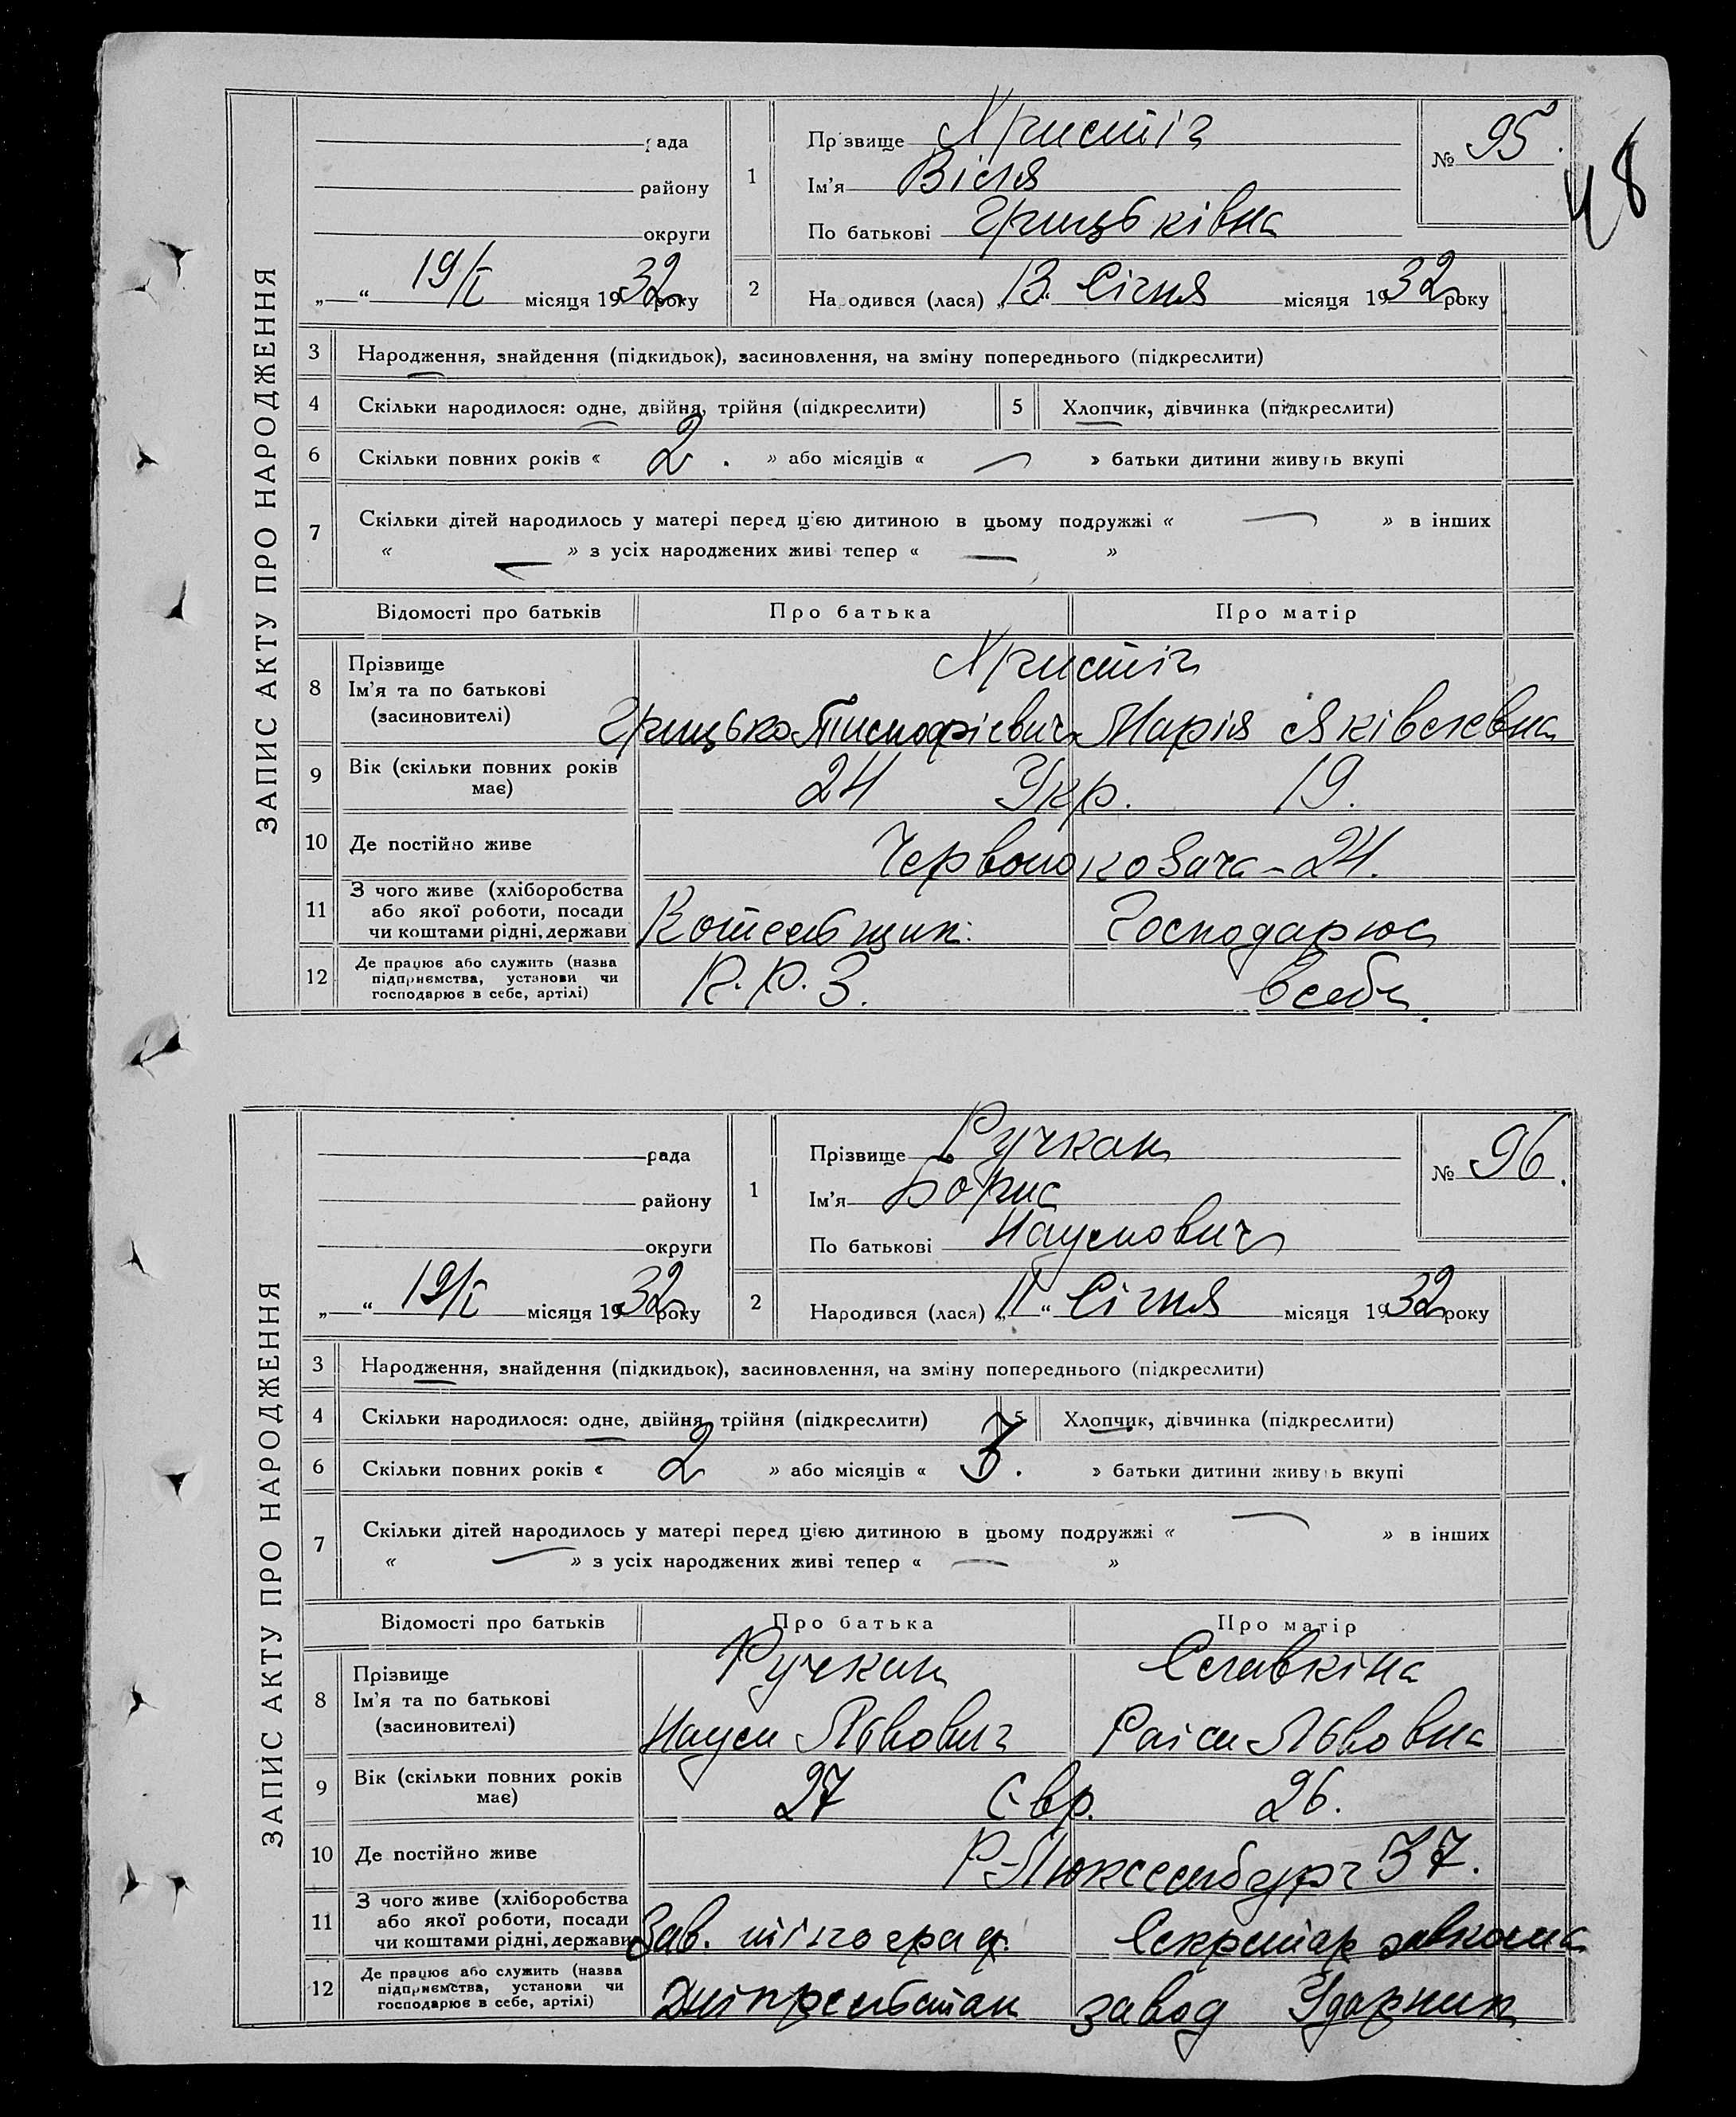 ЗАПИС АКТУ ПРО НАРОДЖЕННЯ
рада
району
округи
„ “ 19/I місяця 1932 року
1
Прізвище Христіч
Ім'я Віля
По батькові Грицьківна
№ 95.
48
2 Народився (лася) „13“ Січня місяця 1932 року
3 Народження, знайдення (підкидьок), засиновлення, на зміну попереднього (підкреслити)
4 Скільки народилося: одне, двійня, трійня (підкреслити)
5 Хлопчик, дівчинка (підкреслити)
6 Скільки повних років « 2. » або місяців « — » батьки дитини живуть вкупі
7 Скільки дітей народилось у матері перед цією дитиною в цьому подружжі « — » в інших
« — » з усіх народжених живі тепер « — »
Відомості про батьків Про батька Про матір
8 Прізвище
Ім'я та по батькові
(засновителі)
Христіч
Грицько Марія Яківлевна
9 Вік (скільки повних років має)
24 Укр. 19.
10 Де постійно живе
Червонокозача - 24.
11 З чого живе (хліборобства
або якої роботи, посади
чи коштами рідні, держави
Котельщик. Господарює
12 Де працює або служить (назва
підприємства, установи чи
господарює в себе, артілі)
К.Р.З. в себе.
ЗАПИС АКТУ ПРО НАРОДЖЕННЯ
рада
району
округи
„ “ 19/I місяця 1932 року
1
Прізвище Ручкан
Ім'я Борис
По батькові Наумович
№ 96.
2 Народився (лася) „11“ Січня місяця 1932 року
3 Народження, знайдення (підкидьок), засиновлення, на зміну попереднього (підкреслити)
4 Скільки народилося: одне, двійня, трійня (підкреслити)
5 Хлопчик, дівчинка (підкреслити)
6 Скільки повних років « 2 » або місяців « 7. » батьки дитини живуть вкупі
7 Скільки дітей народилось у матері перед цією дитиною в цьому подружжі « — » в інших
« — » з усіх народжених живі тепер « — »
Відомості про батьків Про батька Про матір
8 Прізвище
Ім'я та по батькові
(засиновителі)
Ручкан Славкіна
Наум Львович Раіса Львовна
9 Вік (скільки повних років має)
27 Євр. 26.
10 Де постійно живе
Р-Люксембург 37.
11 З чого живе (хліборобства
або якої роботи, посади
чи коштами рідні, держави
Зав. тіпограф. Секретар завкома
12 Де працює або служить (назва
підприємства, установи чи
господарює в себе, артілі)
завод Ударник